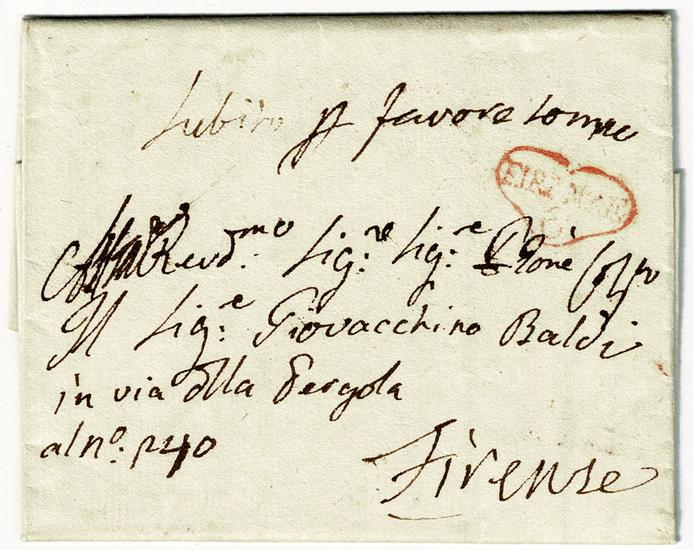 Subito p favore sommo
FIRENZE
Revd.mo Sig.re Sig.re P̃rone
Il Sig.re Giovacchino Baldi
in via dlla Pergola
al nº:
Firenze